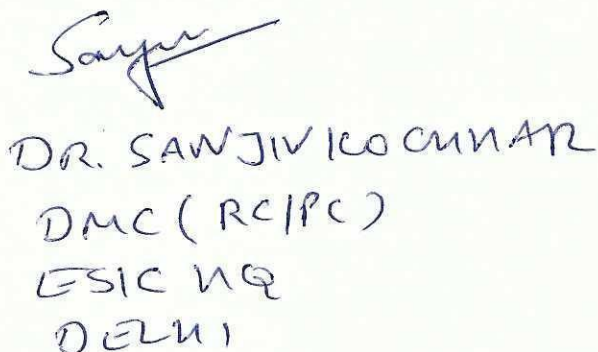 Sanjiv
DR. SANJIV KOCHHAR
DMC (RC/PC)
ESIC HQ
DELHI